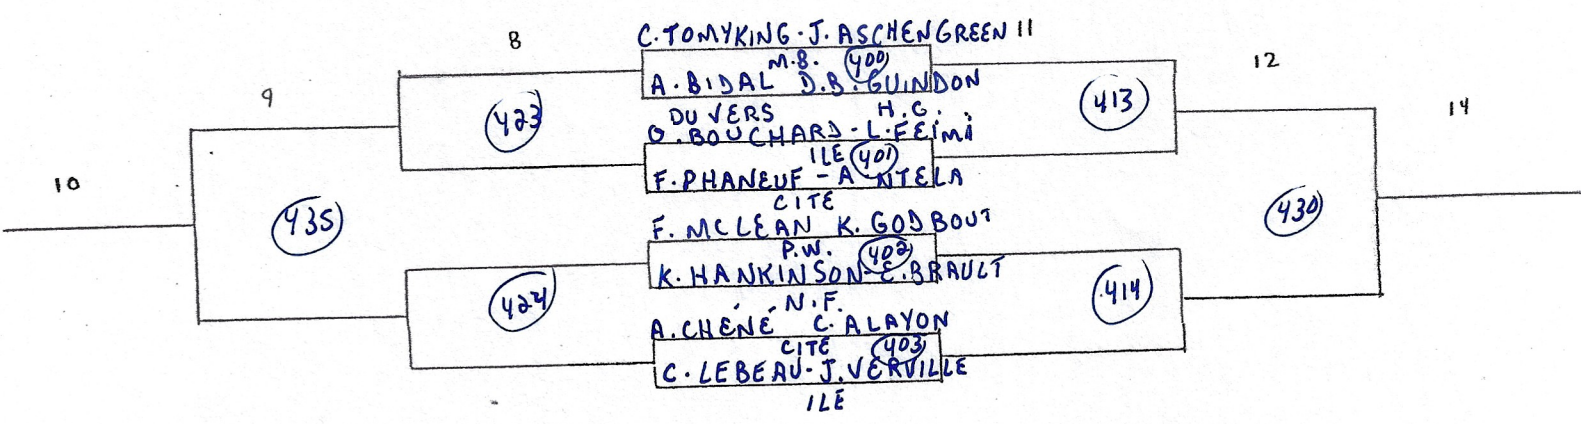 8
9
10
423
435
424
C. TOMYKING - J. ASCHENGREEN 11
M.B. 400
A. BIDAL D.B. GUINDON
DUVERS H.G.
G. BOUCHARD - L. FEIMI
ILE 401
F. PHANEUF - A NTELA
CITÉ
F. MCLEAN K. GODBOUT
P.W. 402
K. HANKINSON - E. BRAULT
N.F.
A. CHÉNÉ C. ALAYON
CITÉ 403
C. LEBEAU - J. VERVILLE
ILE
12
14
413
430
414